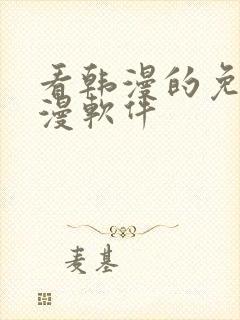 看韩漫的免
漫软件
麦基